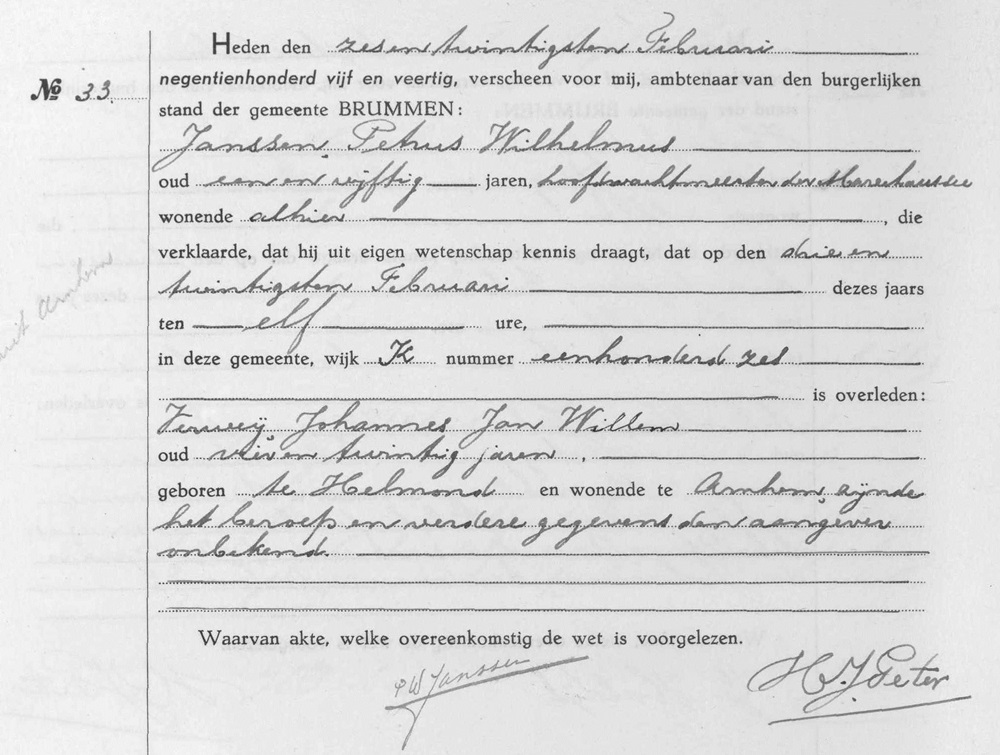 Heden den zes en twintigsten Februari
No 33. negentienhonderd vijf en veertig, verscheen voor mij, ambtenaar van den burgerlijken
stand der gemeente BRUMMEN:
Janssen, Petrus Wilhelmus
oud een en vijftig jaren, hoofdwachtmeester der Marechaussee
wonende alhier , die
verklaarde, dat hij uit eigen wetenschap kennis draagt, dat op den drie en
twintigsten Februari dezes jaars
ten elf ure,
in deze gemeente, wijk K nummer eenhonderd zes
is overleden:
Verweij, Johannes Jan Willem
oud vier en twintig jaren ,
geboren te Helmond en wonende te Arnhem, zijnde
het beroep en verdere gegevens den aangever
onbekend.
Waarvan akte, welke overeenkomstig de wet is voorgelezen.
PW Janssen
H.J. Peter
Arnhem